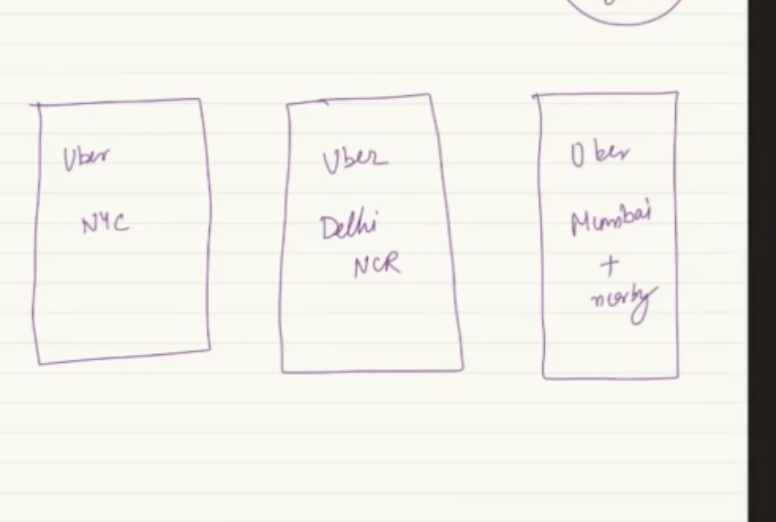 Uber
NYC
Uber
Delhi
NCR
Uber
Mumbai
+
nearby